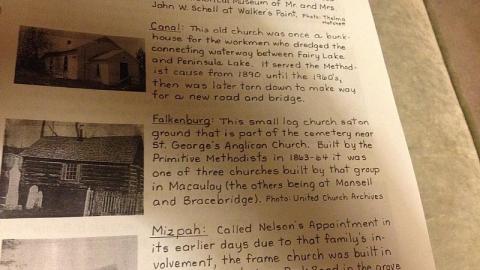 orical Museum of Mr. and Mrs.
John W. Schell at Walker's Point. Photo: Thelma
Canal: This old church was once a bunk-
house for the workmen who dredged the
connecting waterway between Fairy Lake
and Peninsula Lake. It served the Method-
ist cause from 1890 until the 1960's,
then was later torn down to make way
for a new road and bridge.
Falkenburg: This small log church sat on
ground that is part of the cemetery near
St. George's Anglican Church. Built by the
Primitive Methodists in 1863-64 it was
one of three churches built by that group
in Macaulay (the others being at Monsell
and Bracebridge). Photo: United Church Archives
Mizpah: Called Nelson's Appointment in
its earlier days due to that family's in-
volvement, the frame church was built in
Road in the grove